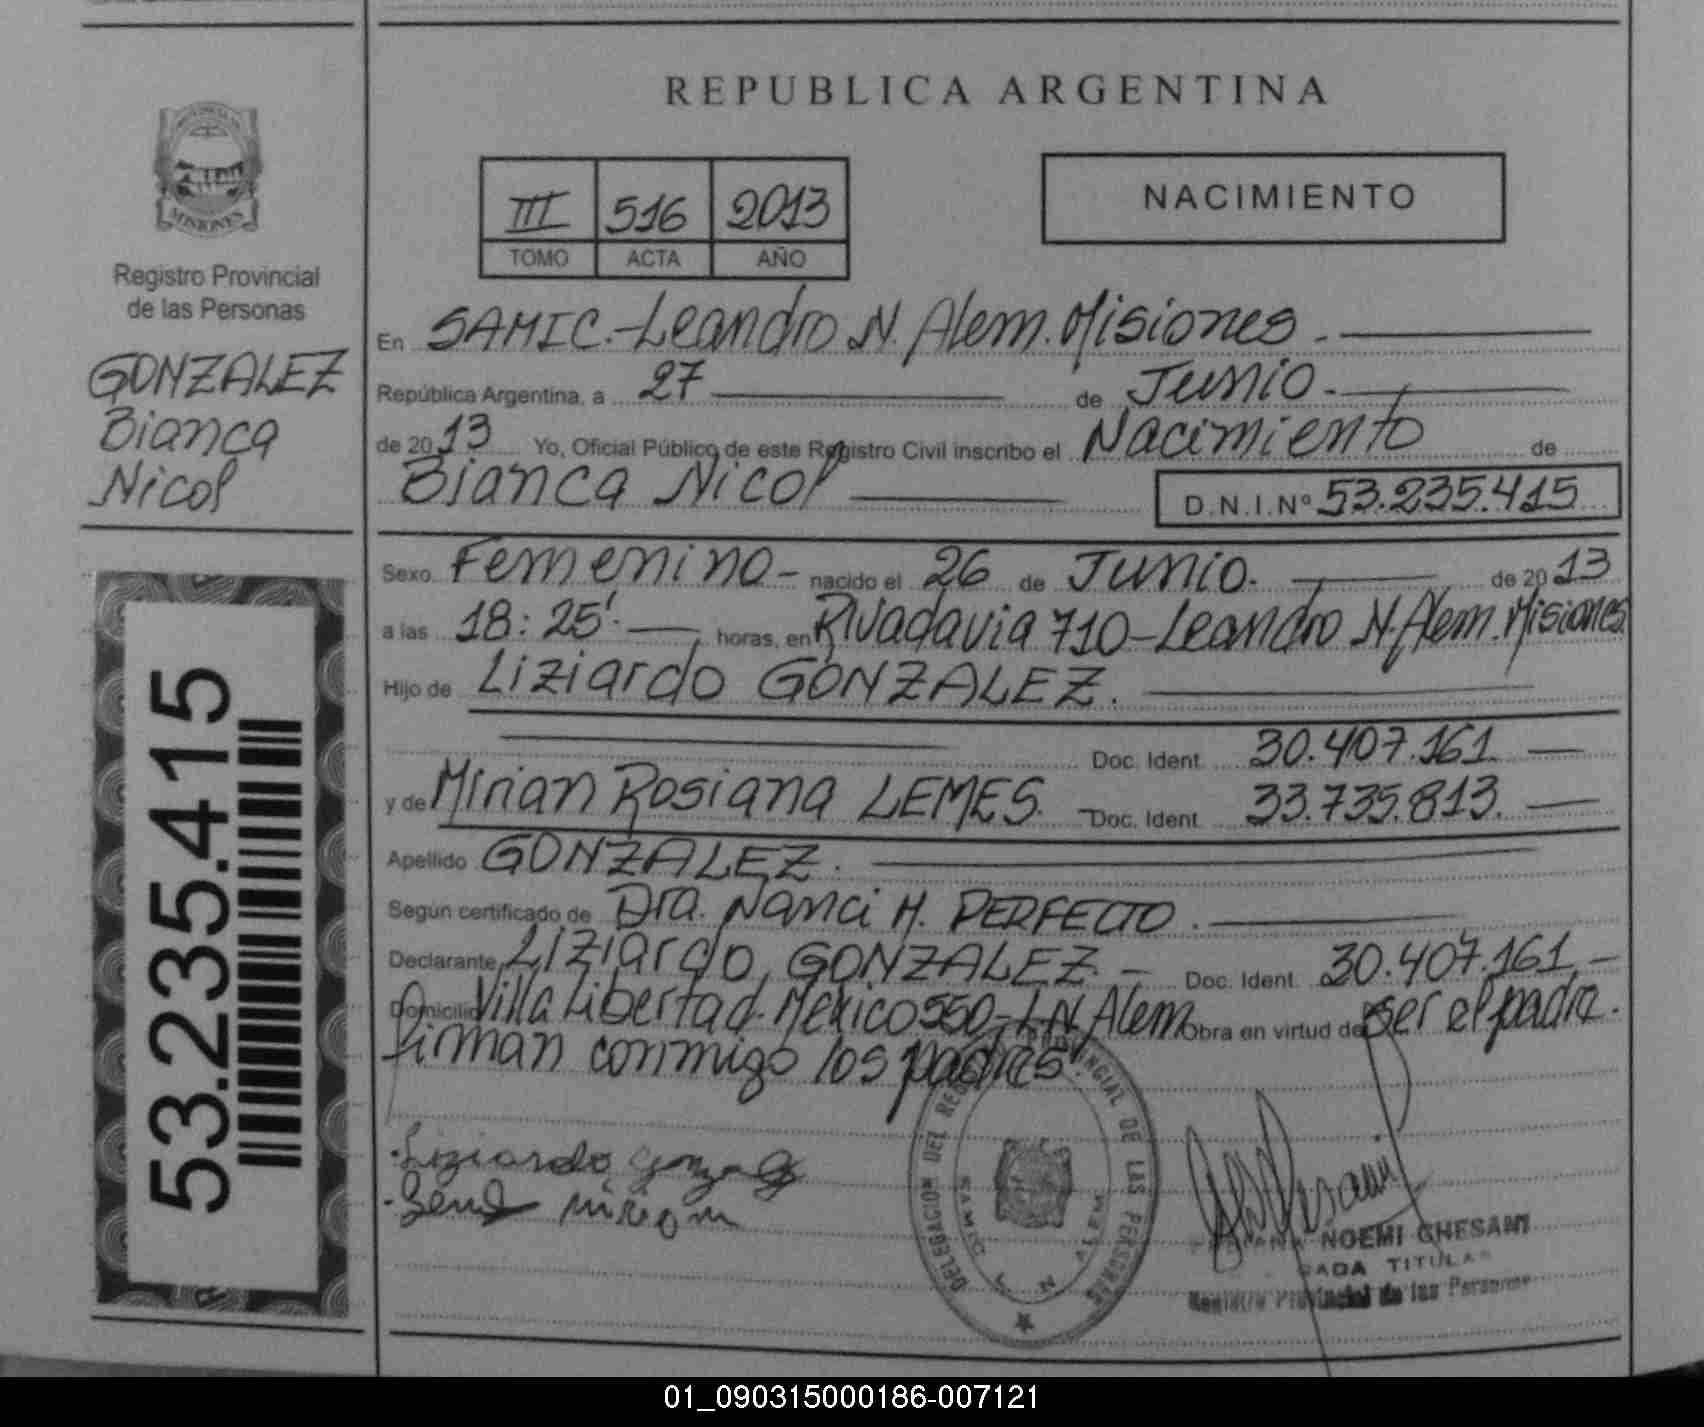 REPUBLICA ARGENTINA
MISIONES
Registro Provincial
de las Personas
GONZALEZ
Bianca
Nicol
53.235.415
III 516 2013
TOMO ACTA AÑO
NACIMIENTO
En SAMIC.-Leandro N. Alem. Misiones.
República Argentina, a 27 de Junio.
de 2013 Yo, Oficial Público de este Registro Civil inscribo el Nacimiento de
Bianca Nicol D.N.I.Nº 53.235.415
Sexo Femenino - nacido el 26 de Junio. de 2013
a las 18:25'. horas, en Rivadavia 710-Leandro N. Alem. Misiones.
Hijo de Liziardo GONZALEZ.
Doc. Ident. 30.407.161
y de Mirian Rosiana LEMES. Doc. Ident. 33.735.813.
Apellido GONZALEZ.
Según certificado de Dra. Nanci H. PERFECTO.
Declarante Liziardo GONZALEZ. - Doc. Ident. 30.407.161.-
Domicilio Villa Libertad. México 550-L.N. Alem Obra en virtud de ser el padre.
firman conmigo los padres.
Liziardo
DELEGACION DEL REGISTRO PROVINCIAL DE LAS PERSONAS
SAMIC L N ALEM
NOEMI GHESANI
TITULAR
Registro Provincial de las Personas
01_090315000186-007121